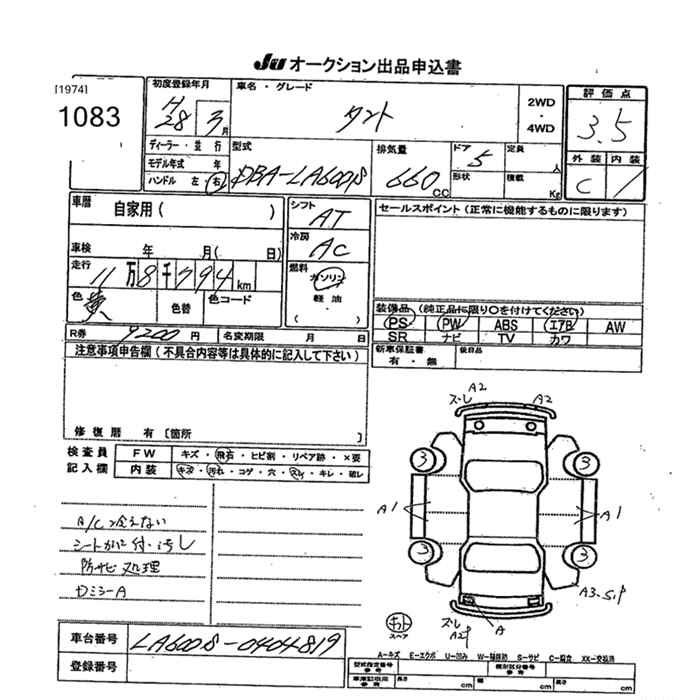 JU オークション出品申込書
[1974]
1083
初度登録年月
H
28 3月
車名・グレード
タント
2WD
・
4WD
評価点
3.5
ディーラー・並行
モデル年式 年
ハンドル 左・右
型式
DBA-LA600S
排気量
660 CC
ドア
5
形状
定員
人
積載
Kg
外装 内装
C
車暦
自家用( )
シフト
AT
セールスポイント(正常に機能するものに限ります)
車検 年 月( 日)
冷房
AC
走行
11万8千794km
燃料
ガソリン
軽油
( )
色
黄
色替
色コード
装備品(純正品に限り○を付けてください)
PS PW ABS エアB AW
SR ナビ TV カワ
R券
9200円
名変期限 月 日
新車保証書
有・無
後日品
注意事項申告欄(不具合内容等は具体的に記入して下さい)
修復暦 有[箇所 ]
検査員
記入欄
FW キズ・飛石・ヒビ割・リペア跡・×要
内装 キズ・汚れ・コゲ・穴・スレ・キレ・破レ
A/C冷えない
防サビ処理
ズレ A2 A2
3 3
A1 A1
3 3
A3.
スペア
ズレ
A
車台番号
LA600S-0404819
登録番号
A-キズ E-エクボ U-凹み W-補修跡 S-サビ C-腐食 XX-交換済
型式指定番号
参考
類別区分番号
参考
車庫証明用
参考
長さ cm 幅 cm 高さ cm